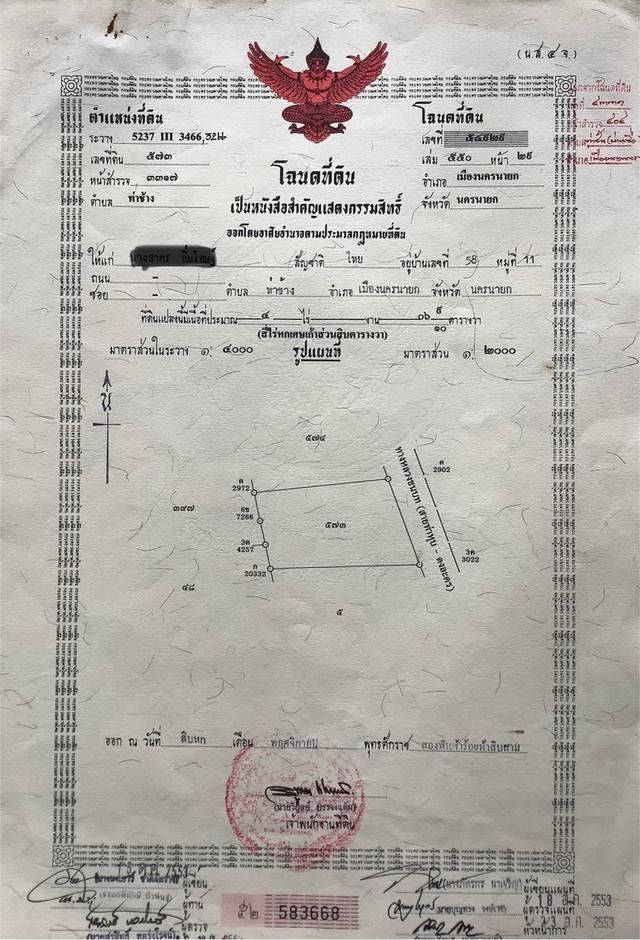 (น.ส.๔ จ.)
ตำแหน่งที่ดิน
ระวาง 5237 III 3466,
เลขที่ดิน ๕๗๓
หน้าสำรวจ ๓๓๑๗
ตำบล ท่าช้าง
โฉนดที่ดิน
เลขที่ ๕๔๙๒๙
เล่ม ๕๕๐ หน้า ๒๙
อำเภอ เมืองนครนายก
จังหวัด นครนายก
โฉนดที่ดิน
เป็นหนังสือสำคัญแสดงกรรมสิทธิ์
ออกโดยอาศัยอำนาจตามประมวลกฎหมายที่ดิน
ให้แก่ สัญชาติ ไทย อยู่บ้านเลขที่ 58 หมู่ที่ 11
ถนน –
ซอย – ตำบล ท่าช้าง อำเภอ เมืองนครนายก จังหวัด นครนายก
ที่ดินแปลงนี้มีเนื้อที่ประมาณ ๔ ไร่ – งาน ๐๖ ๙/๑๐ ตารางวา
(สี่ไร่หกเศษเก้าส่วนสิบตารางวา)
มาตราส่วนในระวาง ๑: ๔๐๐๐ รูปแผนที่ มาตราส่วน ๑: ๒๐๐๐
น
๕๗๔
ค
2902
ค
2972
๓๙๗
6ช
7266
๕๗๓
3ค
4257
3ค
3022
ก
20332
ทางหลวงชนบท (สายท่าหุบ - ดงละคร)
๔๘
๕
ออก ณ วันที่ สิบหก เดือน พฤศจิกายน พุทธศักราช สองพันห้าร้อยห้าสิบสาม
เจ้าพนักงานที่ดิน
ผู้เขียน
ผู้ทาน
ผู้ตรวจ
583668
ผู้เขียนแผนที่
18 ส.ค. 2553
ผู้ตรวจแผนที่
23 ส.ค. 2553
หัวหน้าการ